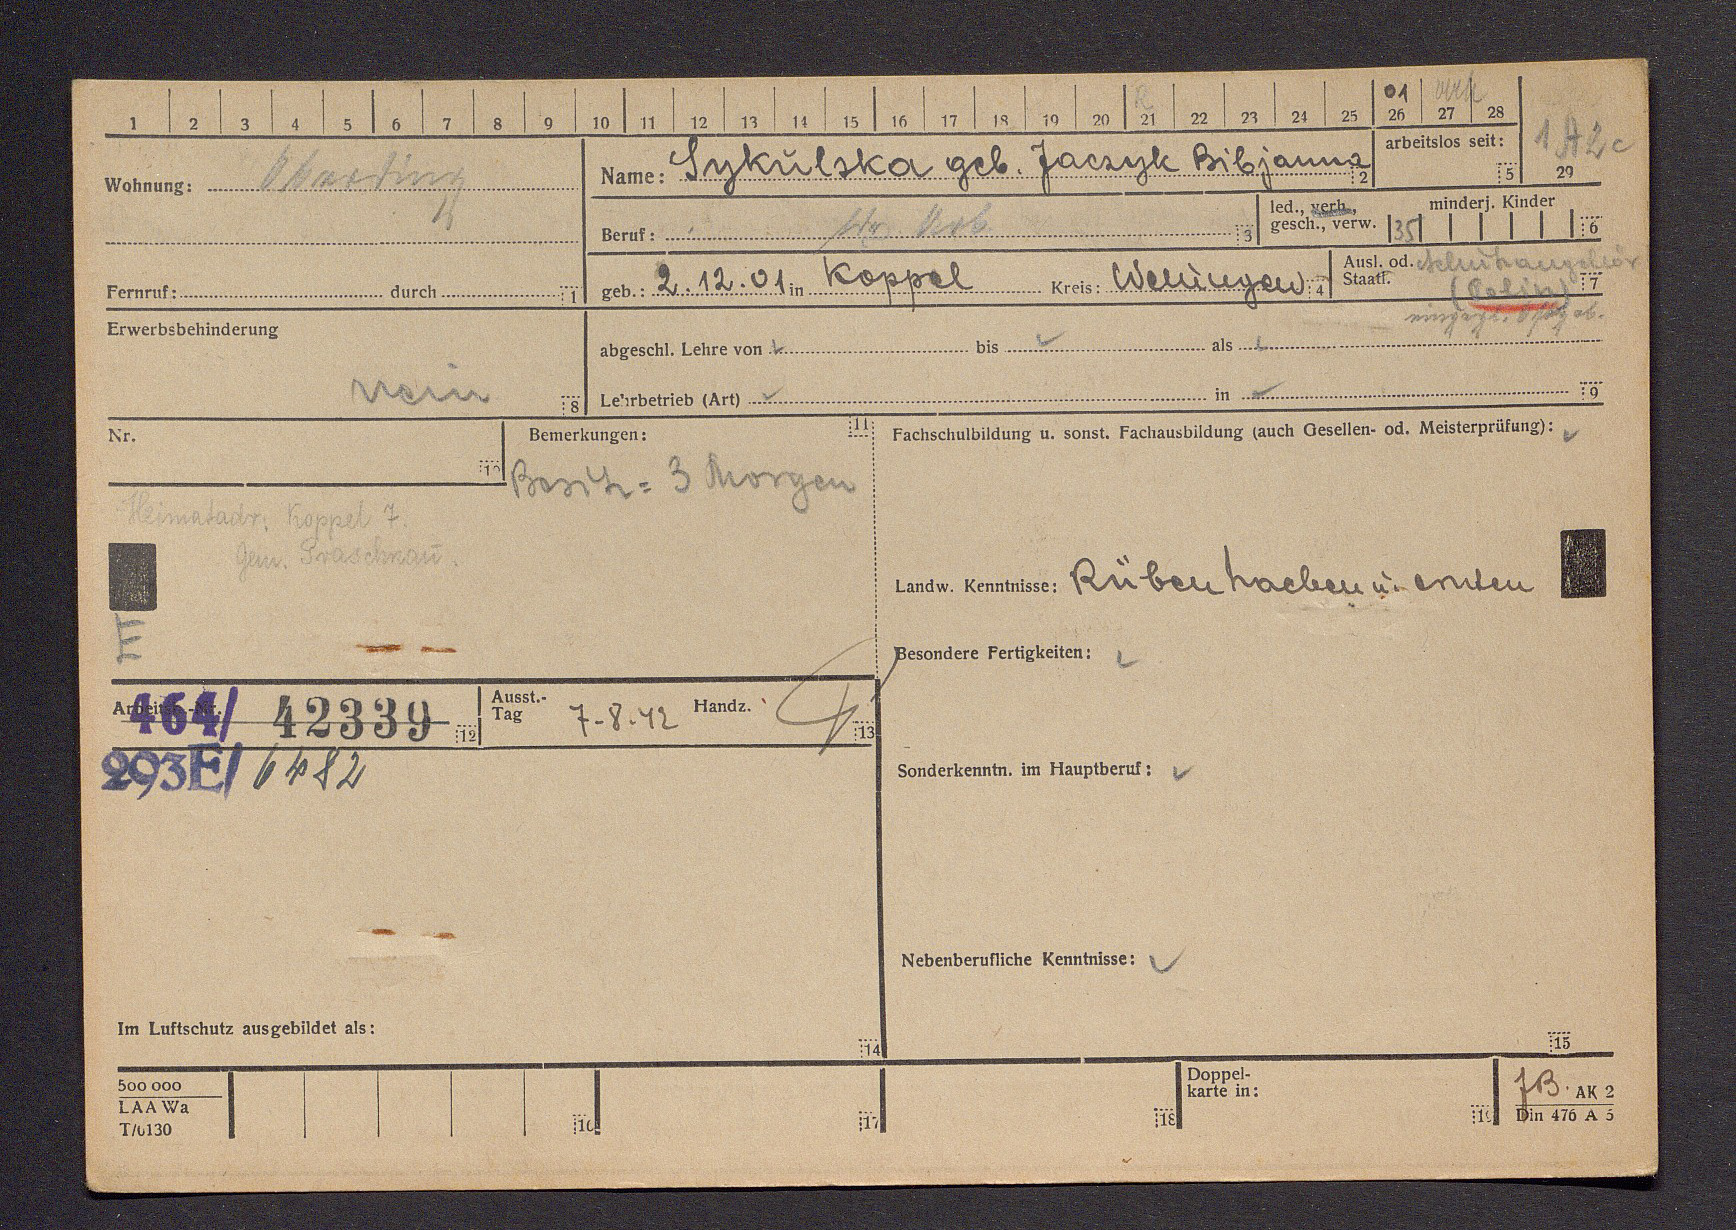 1 2 3 4 5 6 7 8 9 10 11 12 13 14 15 16 17 18 19 20 21 22 23 24 25 26 27 28
01
1A2c
29
Wohnung: Oberding
Name: Sykulska geb. Jaczyk Bibjanna 2
arbeitslos seit: 5
Beruf: 3
led., verh., gesch., verw. 35
minderj. Kinder 6
Fernruf: durch 1
geb.: 2.12.01 in Koppel Kreis: Welungen 4
Ausl. od. Staatl. Schutzangehör 7
(Polin)
Erwerbsbehinderung
nein 8
abgeschl. Lehre von bis als
Lehrbetrieb (Art) in 9
Nr. 10
Bemerkungen: 11
Besitz = 3 Morgen
Heimatadr: Koppel 7.
Gem. Praschkau.
E
Fachschulbildung u. sonst. Fachausbildung (auch Gesellen- od. Meisterprüfung):
Landw. Kenntnisse: Rüben hacken u. ernten
Besondere Fertigkeiten:
Arbeitsb.-Nr. 464/ 42339 12
Ausst.-Tag 7-8-42 Handz. 13
293E/ 6482
Sonderkenntn. im Hauptberuf:
Nebenberufliche Kenntnisse:
Im Luftschutz ausgebildet als:
14
15
500 000
LAA Wa
T/0130
16 17 18
Doppel-
karte in: 19
JB. AK 2
Din 476 A 5